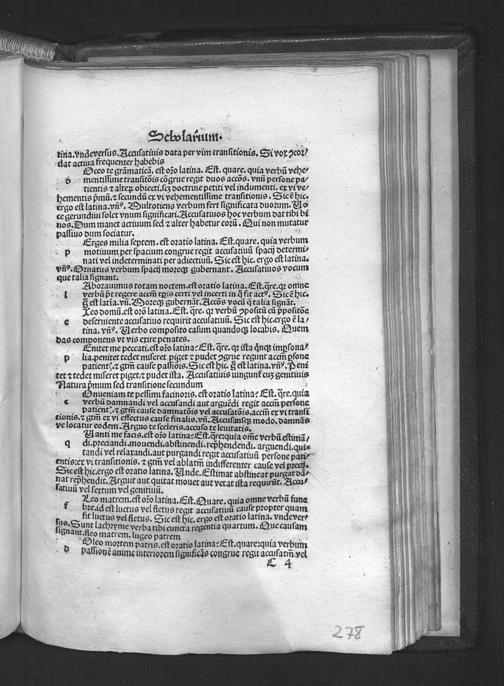 Scholarium.
tina. vnde versus. Accusatiuis data per vim transitionis. Si vox ꝯcor
dat actiua frequenter habebis
Occo te grāmaticā. est oꝛo latina. Est. quare. quia verbū vehe
d mentissime transitōis cōgrue regit duos accōs. vnū persone pa
tientis ⁊ alteꝝ obiecti. seꝫ doctrine petiti vel indumenti. ex vi ve
hementis pͥmū. ⁊ secundū ex vi vehementissime transitionis. Sic ē hic.
ergo est latina. vnͣ. Multotiens verbum fert significata duorum. Vo
ce gerundiui solet vnum significari. Accusatiuos hoc verbum dat tibi bi
nos. Dum manet actiuum sed ⁊ alter habetur eorū. Qui non mutatur
passiuo dum sociatur.
Erges milia septem. est oratio latina. Est. quare. quia verbum
p motiuum per spacium congrue regit accusatiuū spacij determi
nati vel indeterminati per adiectiuū. Sic est hic. ergo est latina.
vnͣ. Ornatus verbum spacij moreqꝫ gubernant. Accusatiuos vocum
que talia signant.
Aborauimus totam noctem. est oratio latina. Est. qͣre. qꝛ omne
l verbū pͭt regere accm̄ tꝑis certi vel incerti in qͦ fit actꝰ. Sic ē hic.
gͦ est latīa. vnͣ. Moreqꝫ gubernāt. Accōs vocū qͥ talia signāt.
Xeo domū. est oꝛo latina. Est. qͣre. qꝛ verbū ꝯpositū cū ꝓpositōe
e deseruiente accusatiuo requirit accusatiuū. Sic est hic. ergo ē la
tina. vnͣ. Verbo composito casum quandoqꝫ locabis. Quem
das componens vt vis exire penates.
Enitet me peccati. est oꝛo latina: Est. qͣre. qꝛ ista qͥnqꝫ imꝑsona
p lia. penitet tedet miseret piget ⁊ pudet ꝯgrue regunt accm̄ ꝑsone
patientꝭ. ⁊ gtm̄ cause passiōis. Sic est hic. gͦ est latina. vnͣ. Peni
tet ⁊ tedet miseret piget ⁊ pudet ista. Accusatiuis iungunt eius genitiuis
Natura pͥmum sed transitione secundum
Onueniam te pessimi facinoris. est oratio latina: Est. qͣre. quia
c verbū damnandi vel accusandi aut arguēdi regit accm̄ persone
patientꝭ. ⁊ gtm̄ cause damnatōis vel accusatōis. accm̄ ex vi transi
tionis. ⁊ gtm̄ ex vi effectus cause finalis. vnͣ. Accusansqꝫ modo. damnās
ve locatur eodem. Arguo te sceleris. accuso te leuitatis.
Uanti me facis. est oꝛo latina: Est. qͣre. quia om̄e verbū estimā
q di. preciandi. mouendi. abstinendi. reprehendendi. arguendi. qui
tandi vel relaxandi. aut purgandi regit accusatiuū persone pati
entis: ex vi transitionis. ⁊ gtm̄ vel ablatm̄ indifferenter cause vel precij.
Sic est hic. ergo est oratio latina. Unde. Estimat abstineat purgat dā
nat reprehendit. Arguit aut quitat mouet aut vetat ista requirūt. Accu
satiuū vel septum vel genitiuū.
Leo matrem. est oꝛo latina. Est. Quare. quia omne verbū fune
f bre. id est luctus vel fletus regit accusatiuū cause propter quam
fit luctus vel fletus. Sic est hic. ergo est oratio latina. vnde ver
sus. Sunt lachryme verba tibi cuncta regentia quartum. Que causam
signant. fleo matrem. lugeo patrem
Oleo mortem patris. est oratio latina: Est. quare: quia verbum
d passionē anime interiorem significās congrue regit accusatm̄ vel
C 4
278